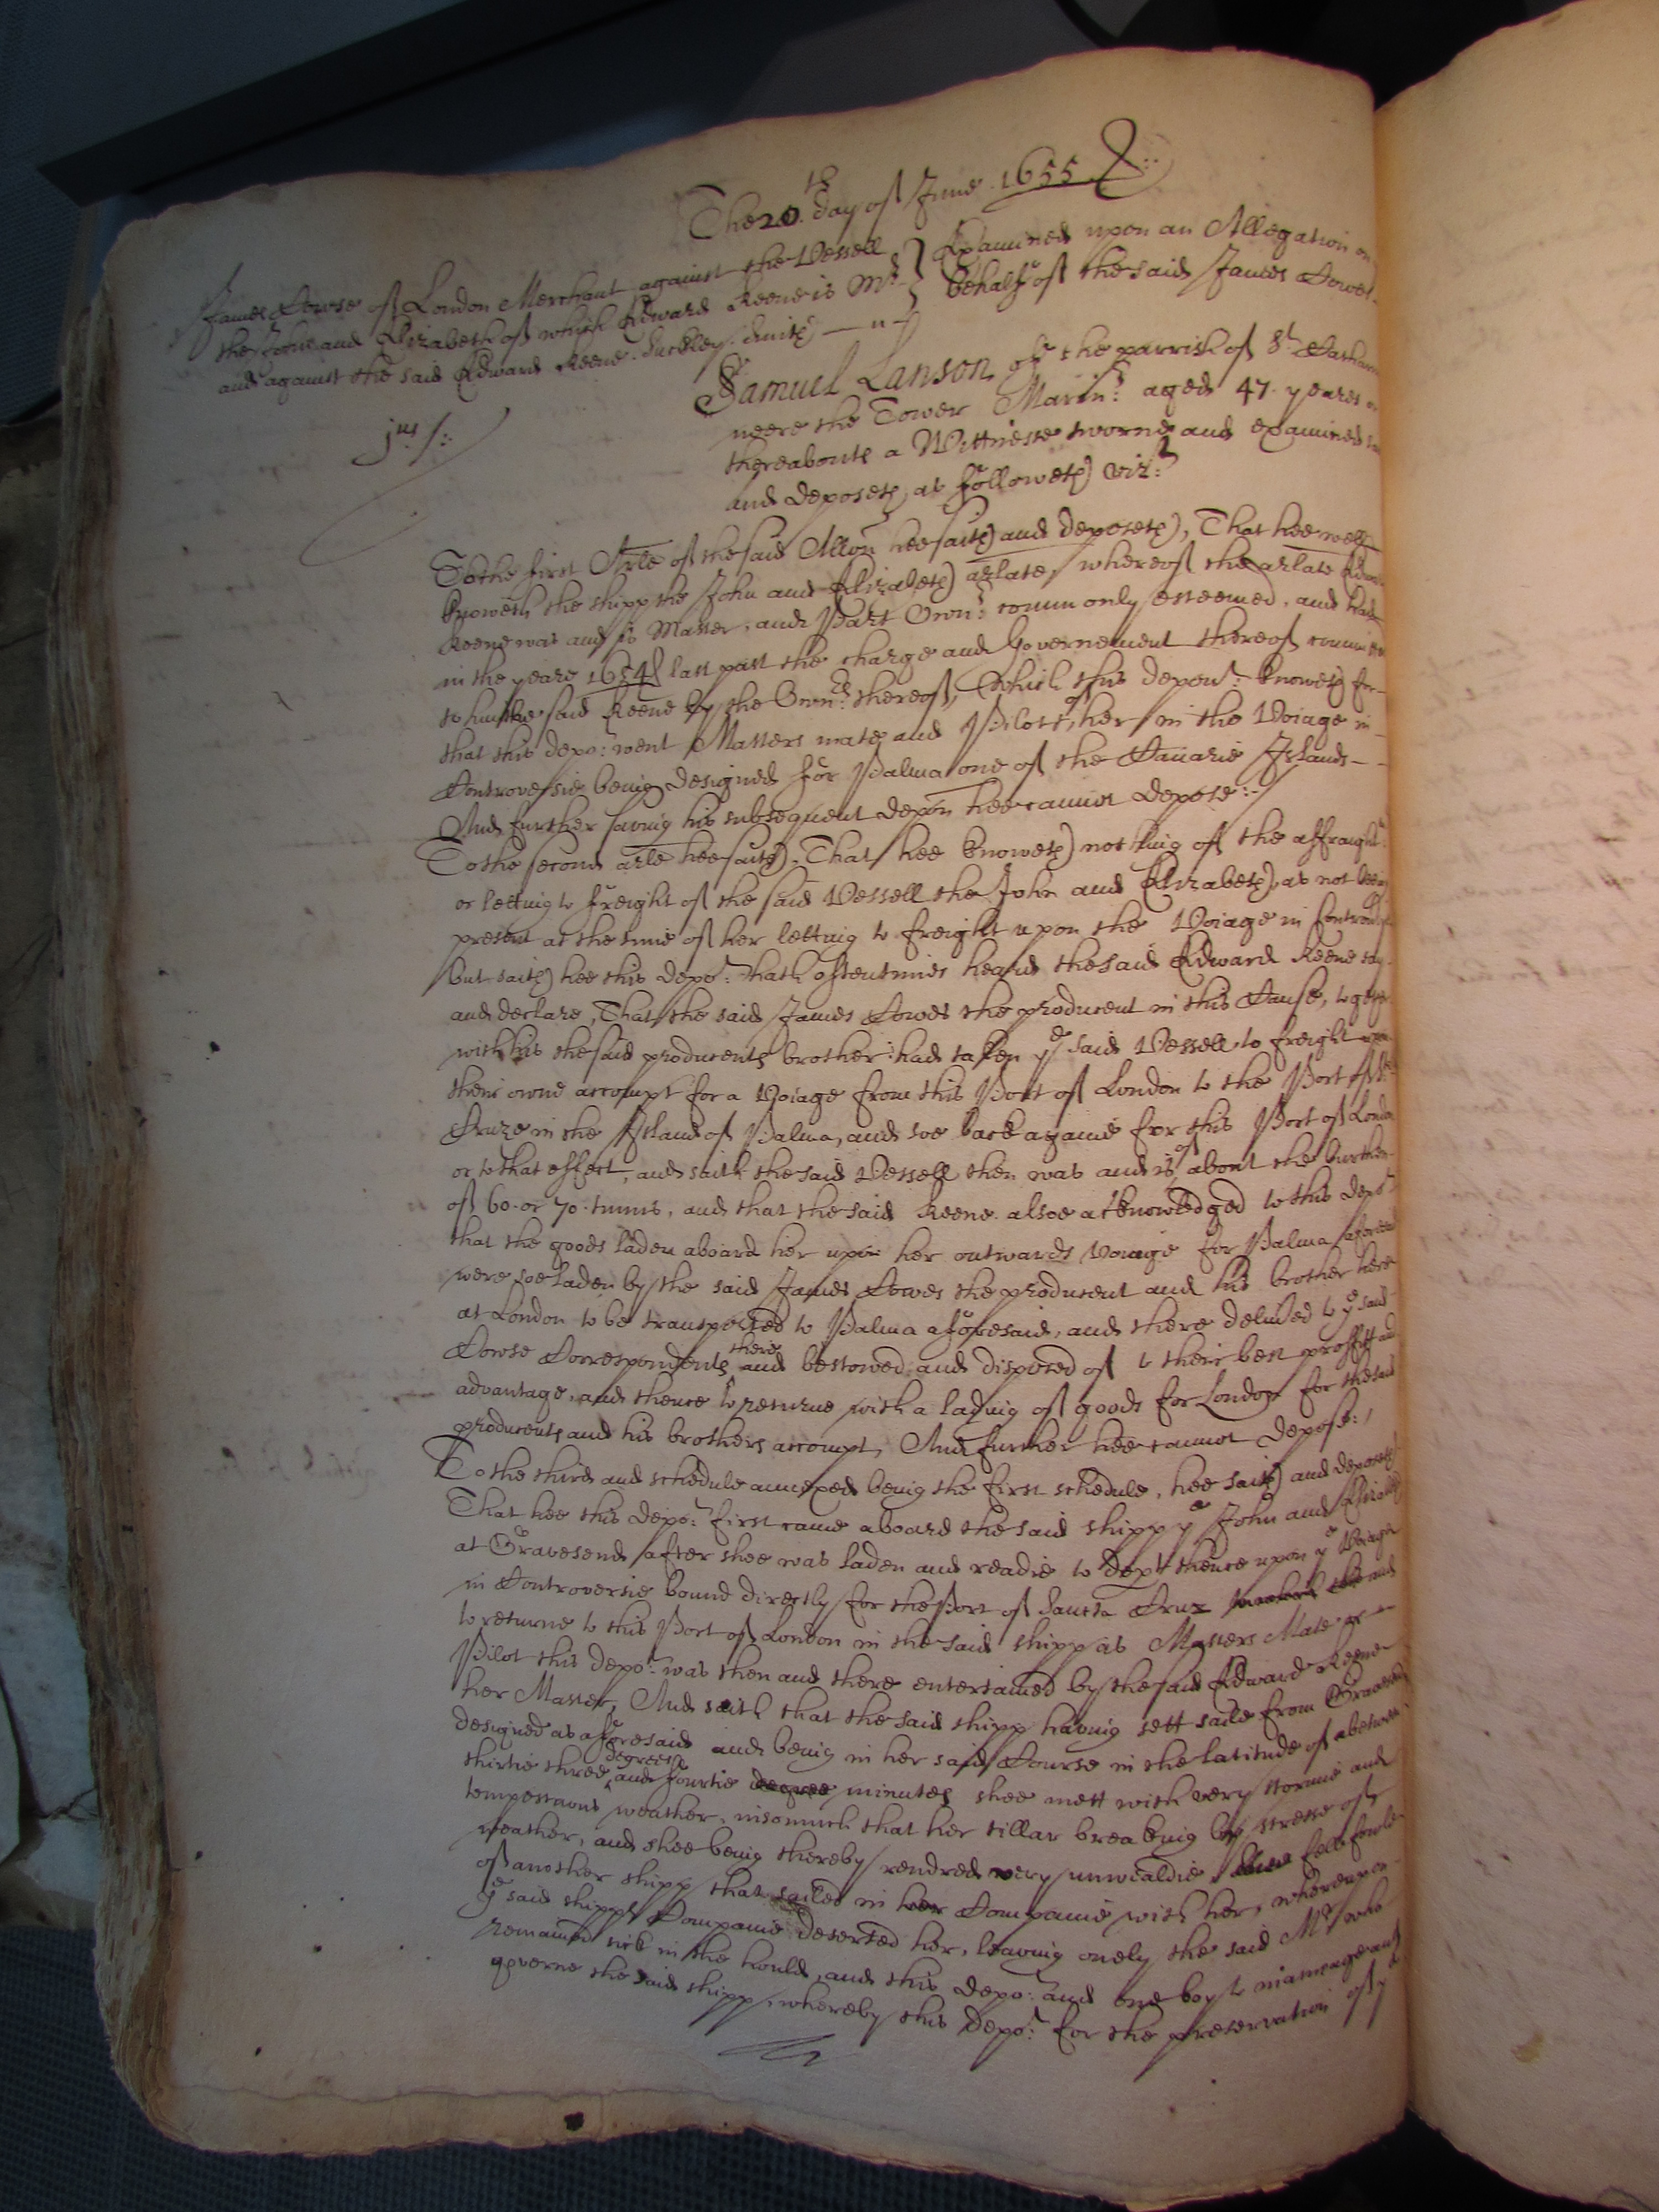 The 20th day of June 1655
James Dowse of London Merchant against the Vessell
the John and Elizabeth of which Edward Keene is Mr
and against the said Edward Keene. Suckley. Smith
Examined upon an Allegation on
behalfe of the said James Dowse.
jus
Samuel Lanson of the parrish of St Katharin
neere the Tower Marinr aged 47 yeares or
thereabouts a Wittnesse sworne and examined
and deposeth as followeth vizt
To the first Arle of the said Allon hee saith and deposeth, That hee well
knoweth the shipp the John and Elizabeth arlate, whereof the arlate Edward
Keene was and is Master, and Part Ownr comm only esteemed, and had
in the yeare 1654 last past the charge and Governement thereof committed
to him the said Keene by the Ownrs thereof, Which this deponr knoweth for
that this depo: went Masters mate and Pilott of her in the Voiage in
Controversie being designed for Palma one of the Canarie Islands
And further saving his subsequent depon hee cannot depose:
To the second arle hee saith, That hee knoweth nothing of the affraightmt
or letting to freight of the said Vessell the John and Elizabeth, as not being
present at the time of her letting to freight upon the Voiage in Controversie
but saith hee this depot hath oftentimes heard the said Edward Keene say
and declare, That the said James Dowes the producent in this Cause, together
with his the said producents brother had taken ye said Vessell to freight upon
their owne accompt for a Voiage from this Port of London to the Port of Sta
Cruze in the Island of Palma, and soe back againe for this Port of London
or to that effect, and saith the said Vessell then was and is of about the burthen
of 60 or 70 tunns, and that the said Keene alsoe acknowledged to this depot
that the goods laden aboard her upon her outwards voiage for Palma aforesaid
were soe laden by the said James Dowes the producent and his brother here
at London to be transported to Palma aforesaid, and there delivered to ye said
Dowse Correspondents there and bestowed and disposed of to their best proffitt and
advantage, and thence to returne with a lading of goods for London for the said
producents and his brothers accompt, And further hee cannot depose:
To the third and schedule annexed being the first schedule, hee saith and deposeth
That hee this depot first came aboard the said shipp ye John and Elizabeth
at Gravesend after shee was laden and readie to dept thence upon ye Voiage
in Controversie bound directly for the Port of Santa Cruz and
to returne to this Port of London in the said shipp as Masters Mate or
Pilot this depot was then and there entertained by the said Edward Keene
her Master, And saith that the said shipp having sett saile from Gravesend
designed as afforesaid and being in her said Course in the latitude of abetweene
thirtie three degrees and fourtie degree minutes shee mett with very stormie and
tempestuous weather, insomuch that her tillar breaking by stresse of
weather, and shee being thereby rendred very unwealdie fell fowle
of another shipp that sailed in her Companie with her, whereupon
ye said shipps Companie deserted her, leaving onely the said Mr who
remained sick in the hould, and this depot and one boy to manage and
governe the said shipp, whereby this depot for the preservation of ye